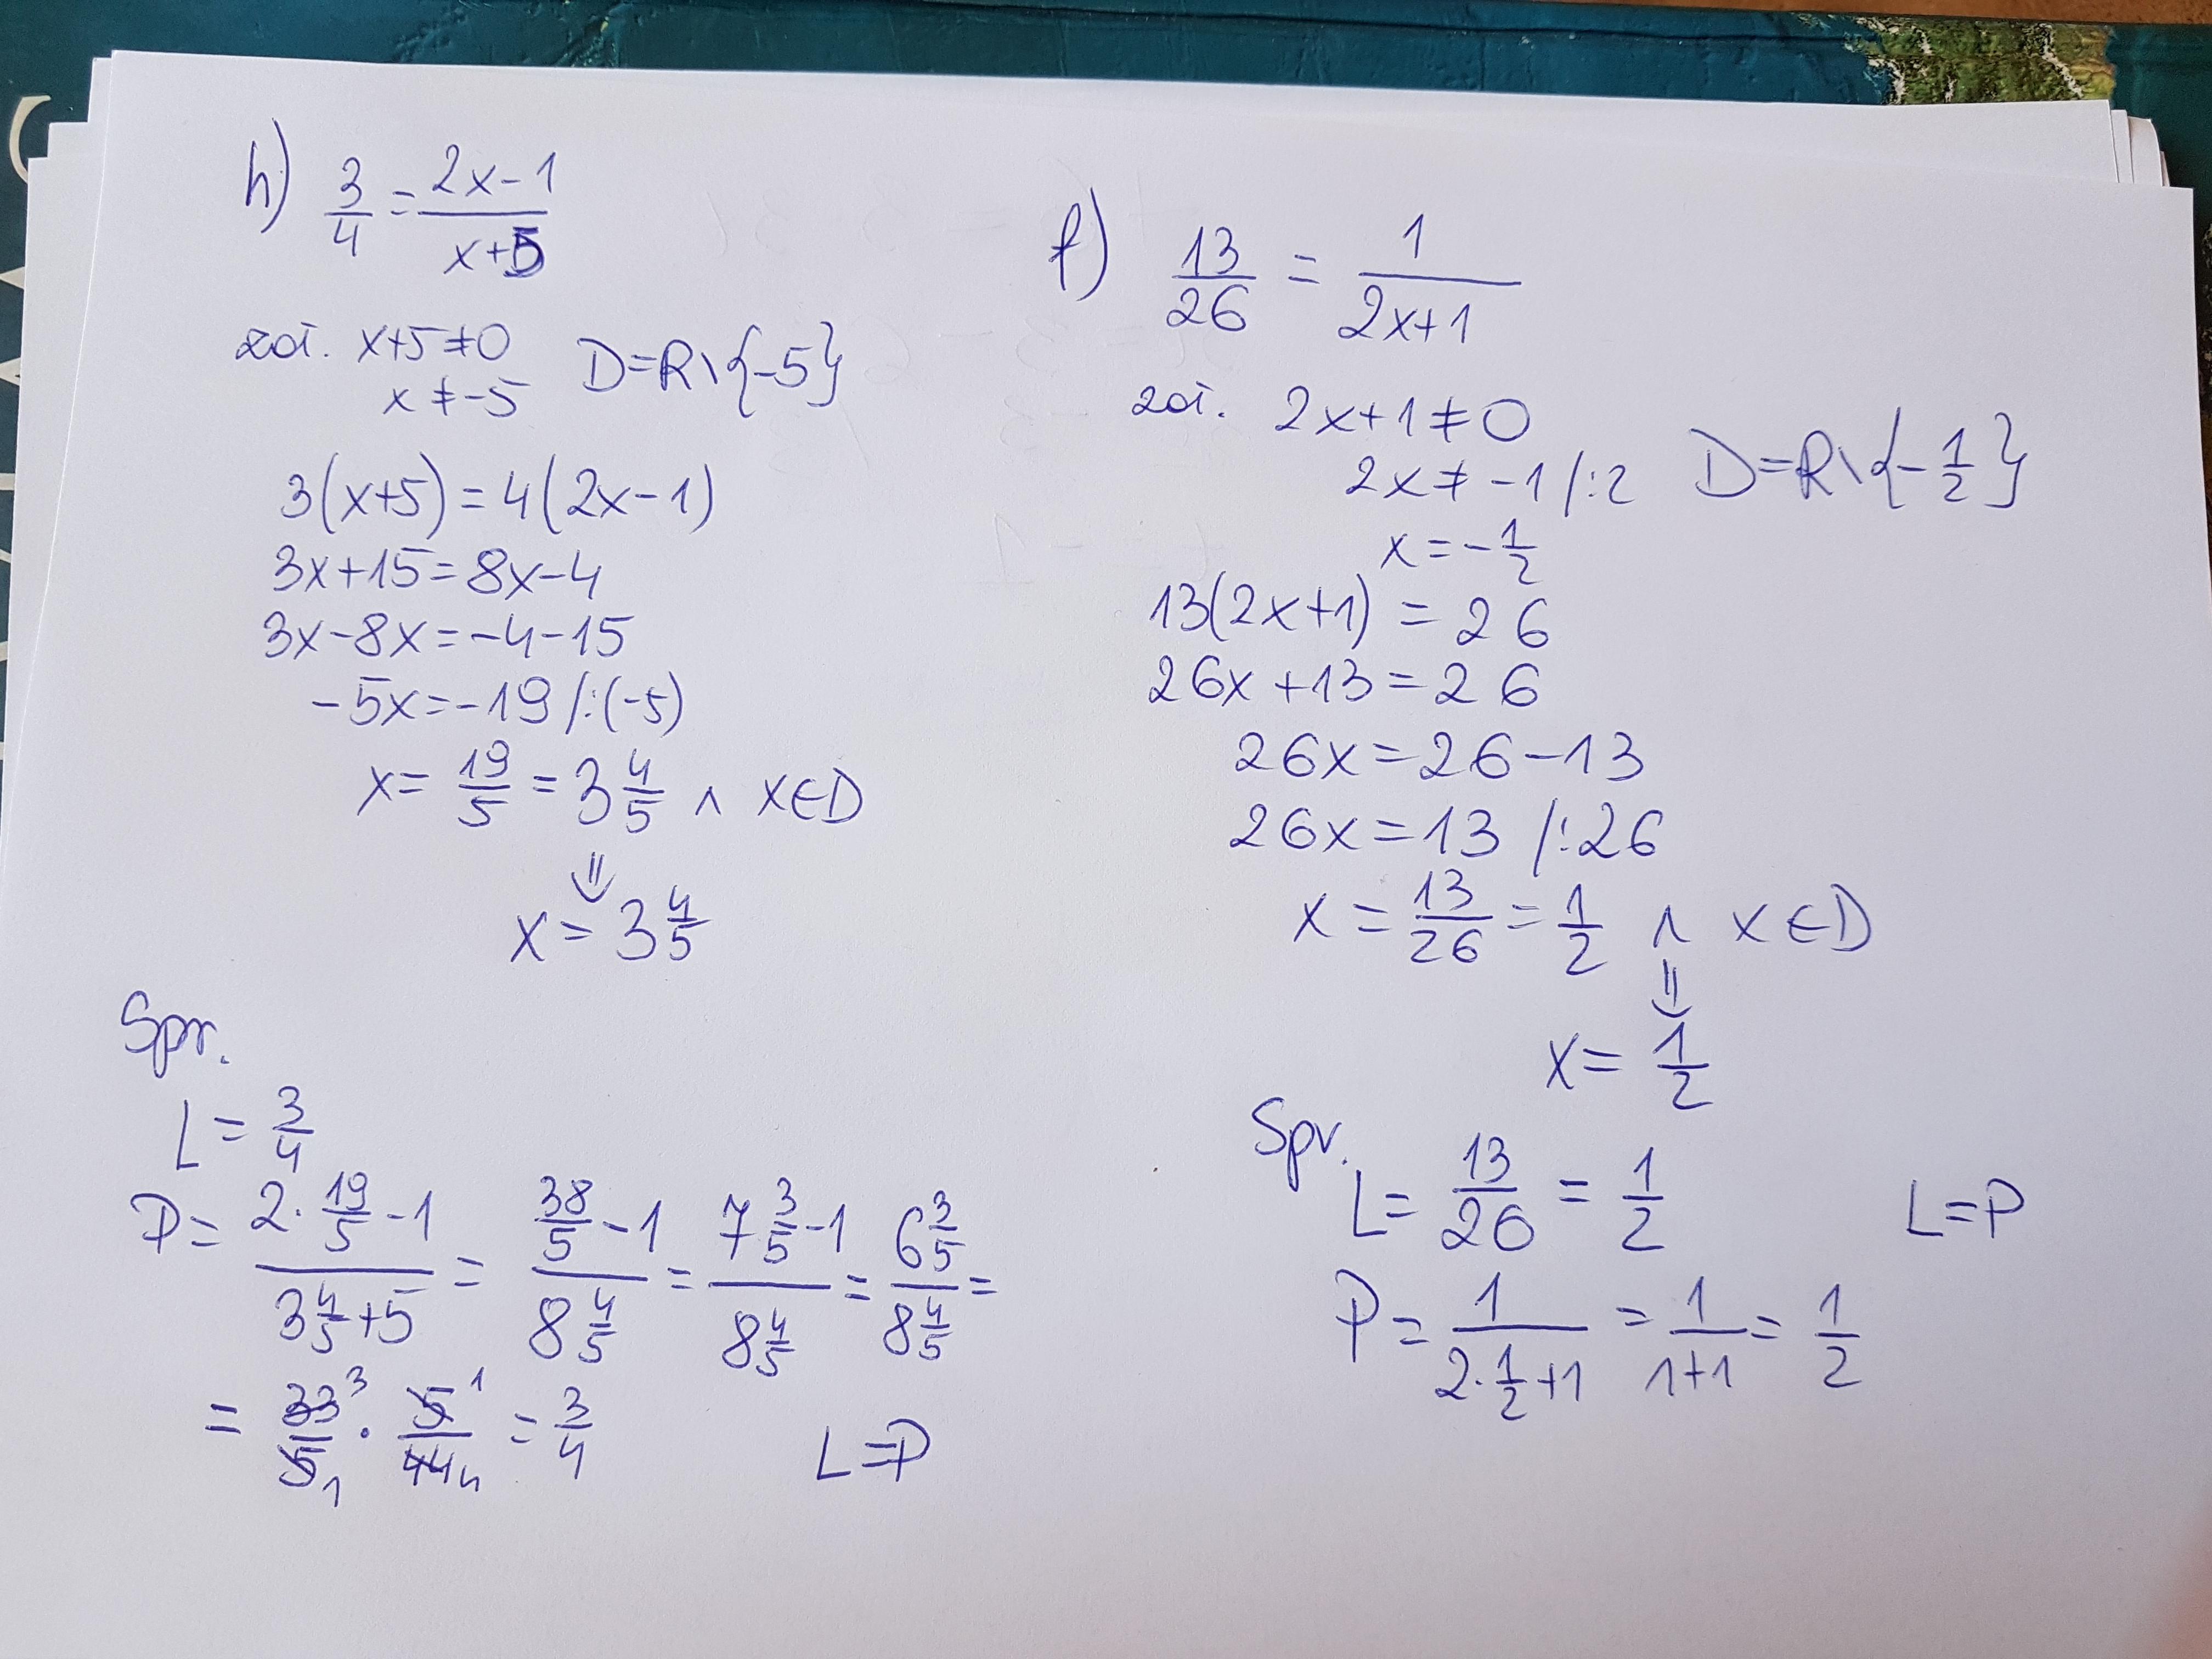 h) 3/4 = (2x-1)/(x+5)
zał. x+5≠0
x≠-5 D=R\{-5}
3(x+5)=4(2x-1)
3x+15=8x-4
3x-8x=-4-15
-5x=-19 /:(-5)
x= 19/5 = 3 4/5 ∧ x∈D
⇓
x= 3 4/5
Spr.
L= 3/4
P= (2·19/5-1)/(3 4/5+5) = (38/5-1)/(8 4/5) = (7 3/5-1)/(8 4/5) = (6 3/5)/(8 4/5) =
= 33³/5₁ · 5¹/44₄ = 3/4 L=P
f) 13/26 = 1/(2x+1)
zał. 2x+1≠0
2x≠-1 /:2 D=R\{-1/2}
x=-1/2
13(2x+1) = 26
26x+13=26
26x=26-13
26x=13 /:26
x= 13/26 = 1/2 ∧ x∈D
⇓
x= 1/2
Spr.
L= 13/26 = 1/2 L=P
P= 1/(2·1/2+1) = 1/(1+1) = 1/2